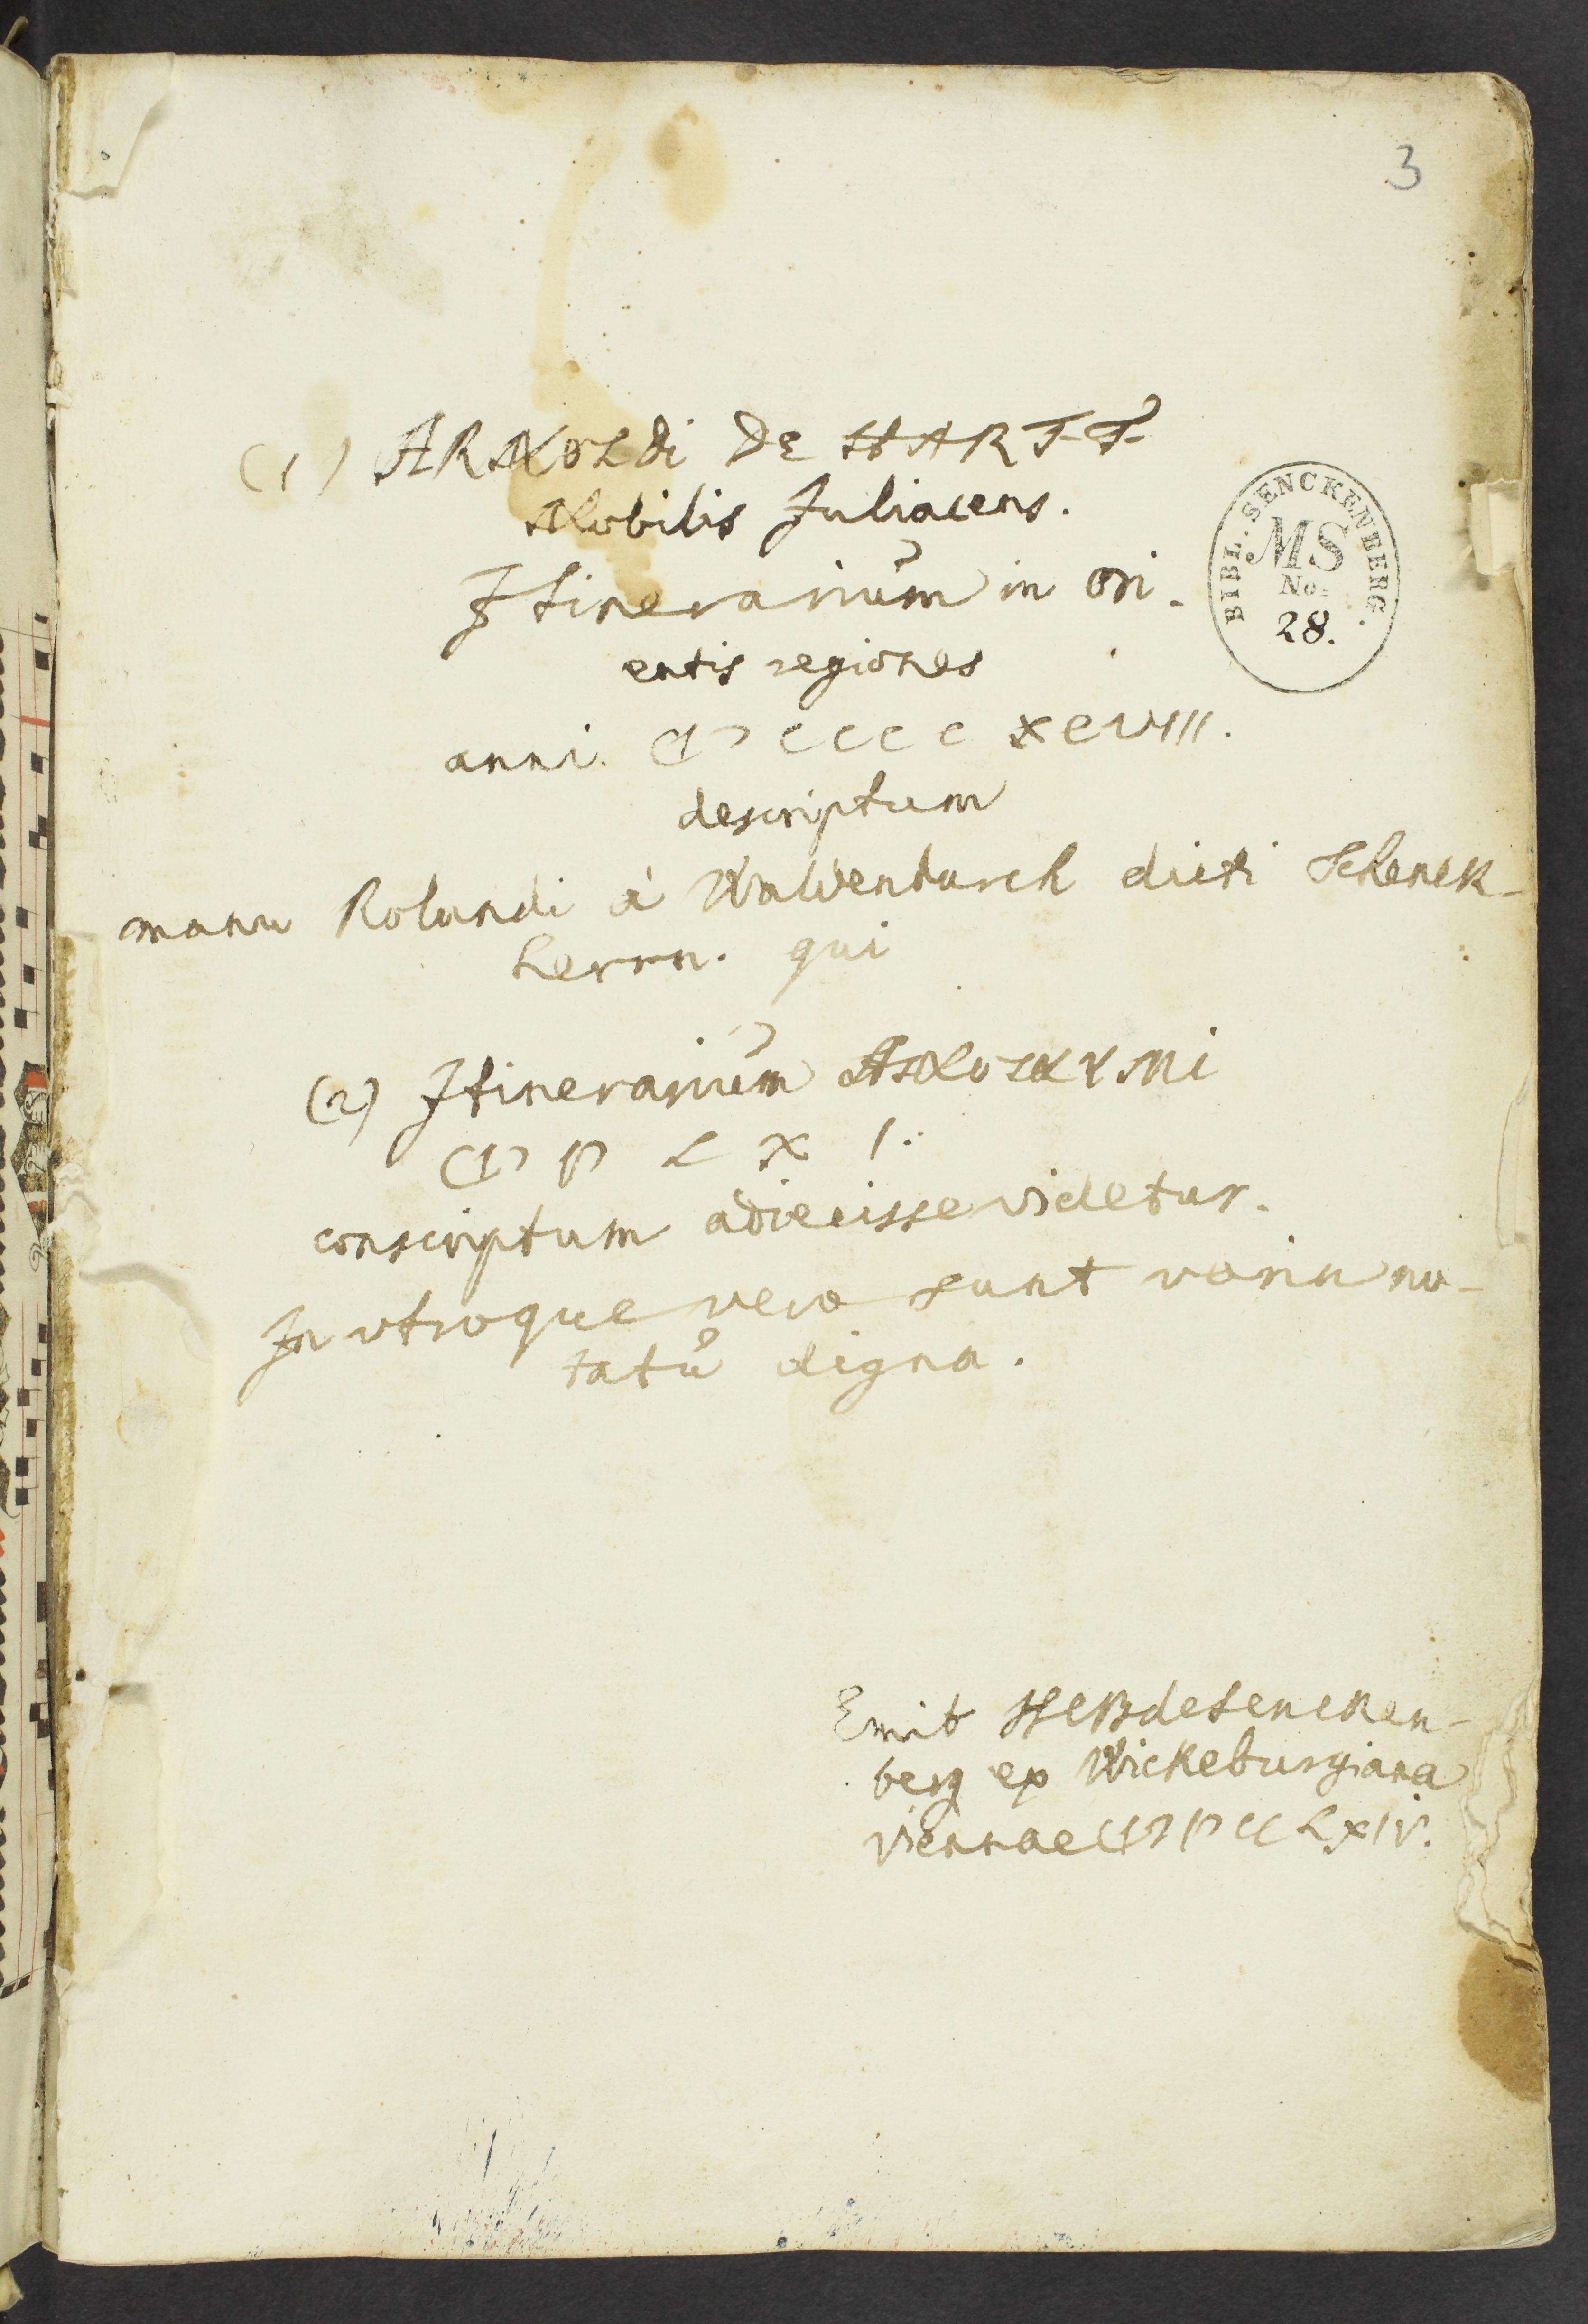 3
(1) ARNOLDi DE HARFF
Nobilis Juliacens.
Itinerariŭm in ori-
entis regiones
anni. CIƆ CCCC XCVIII.
descriptum
manu Rolandi à Waldenburch dicti Schenck-
herrn. qui
(2) Itinerariŭm ANONYMi
CIƆ IƆ L X I.
conscriptum adiecisse videtur.
In utroque vero sunt varia no-
tatŭ digna.
BIBL. SENCKENBERG.
MS
No.
28.
Emit HCB de Sencken-
berg ex Wickeburgiana
Viennae CIƆ IƆ CC LXIV.